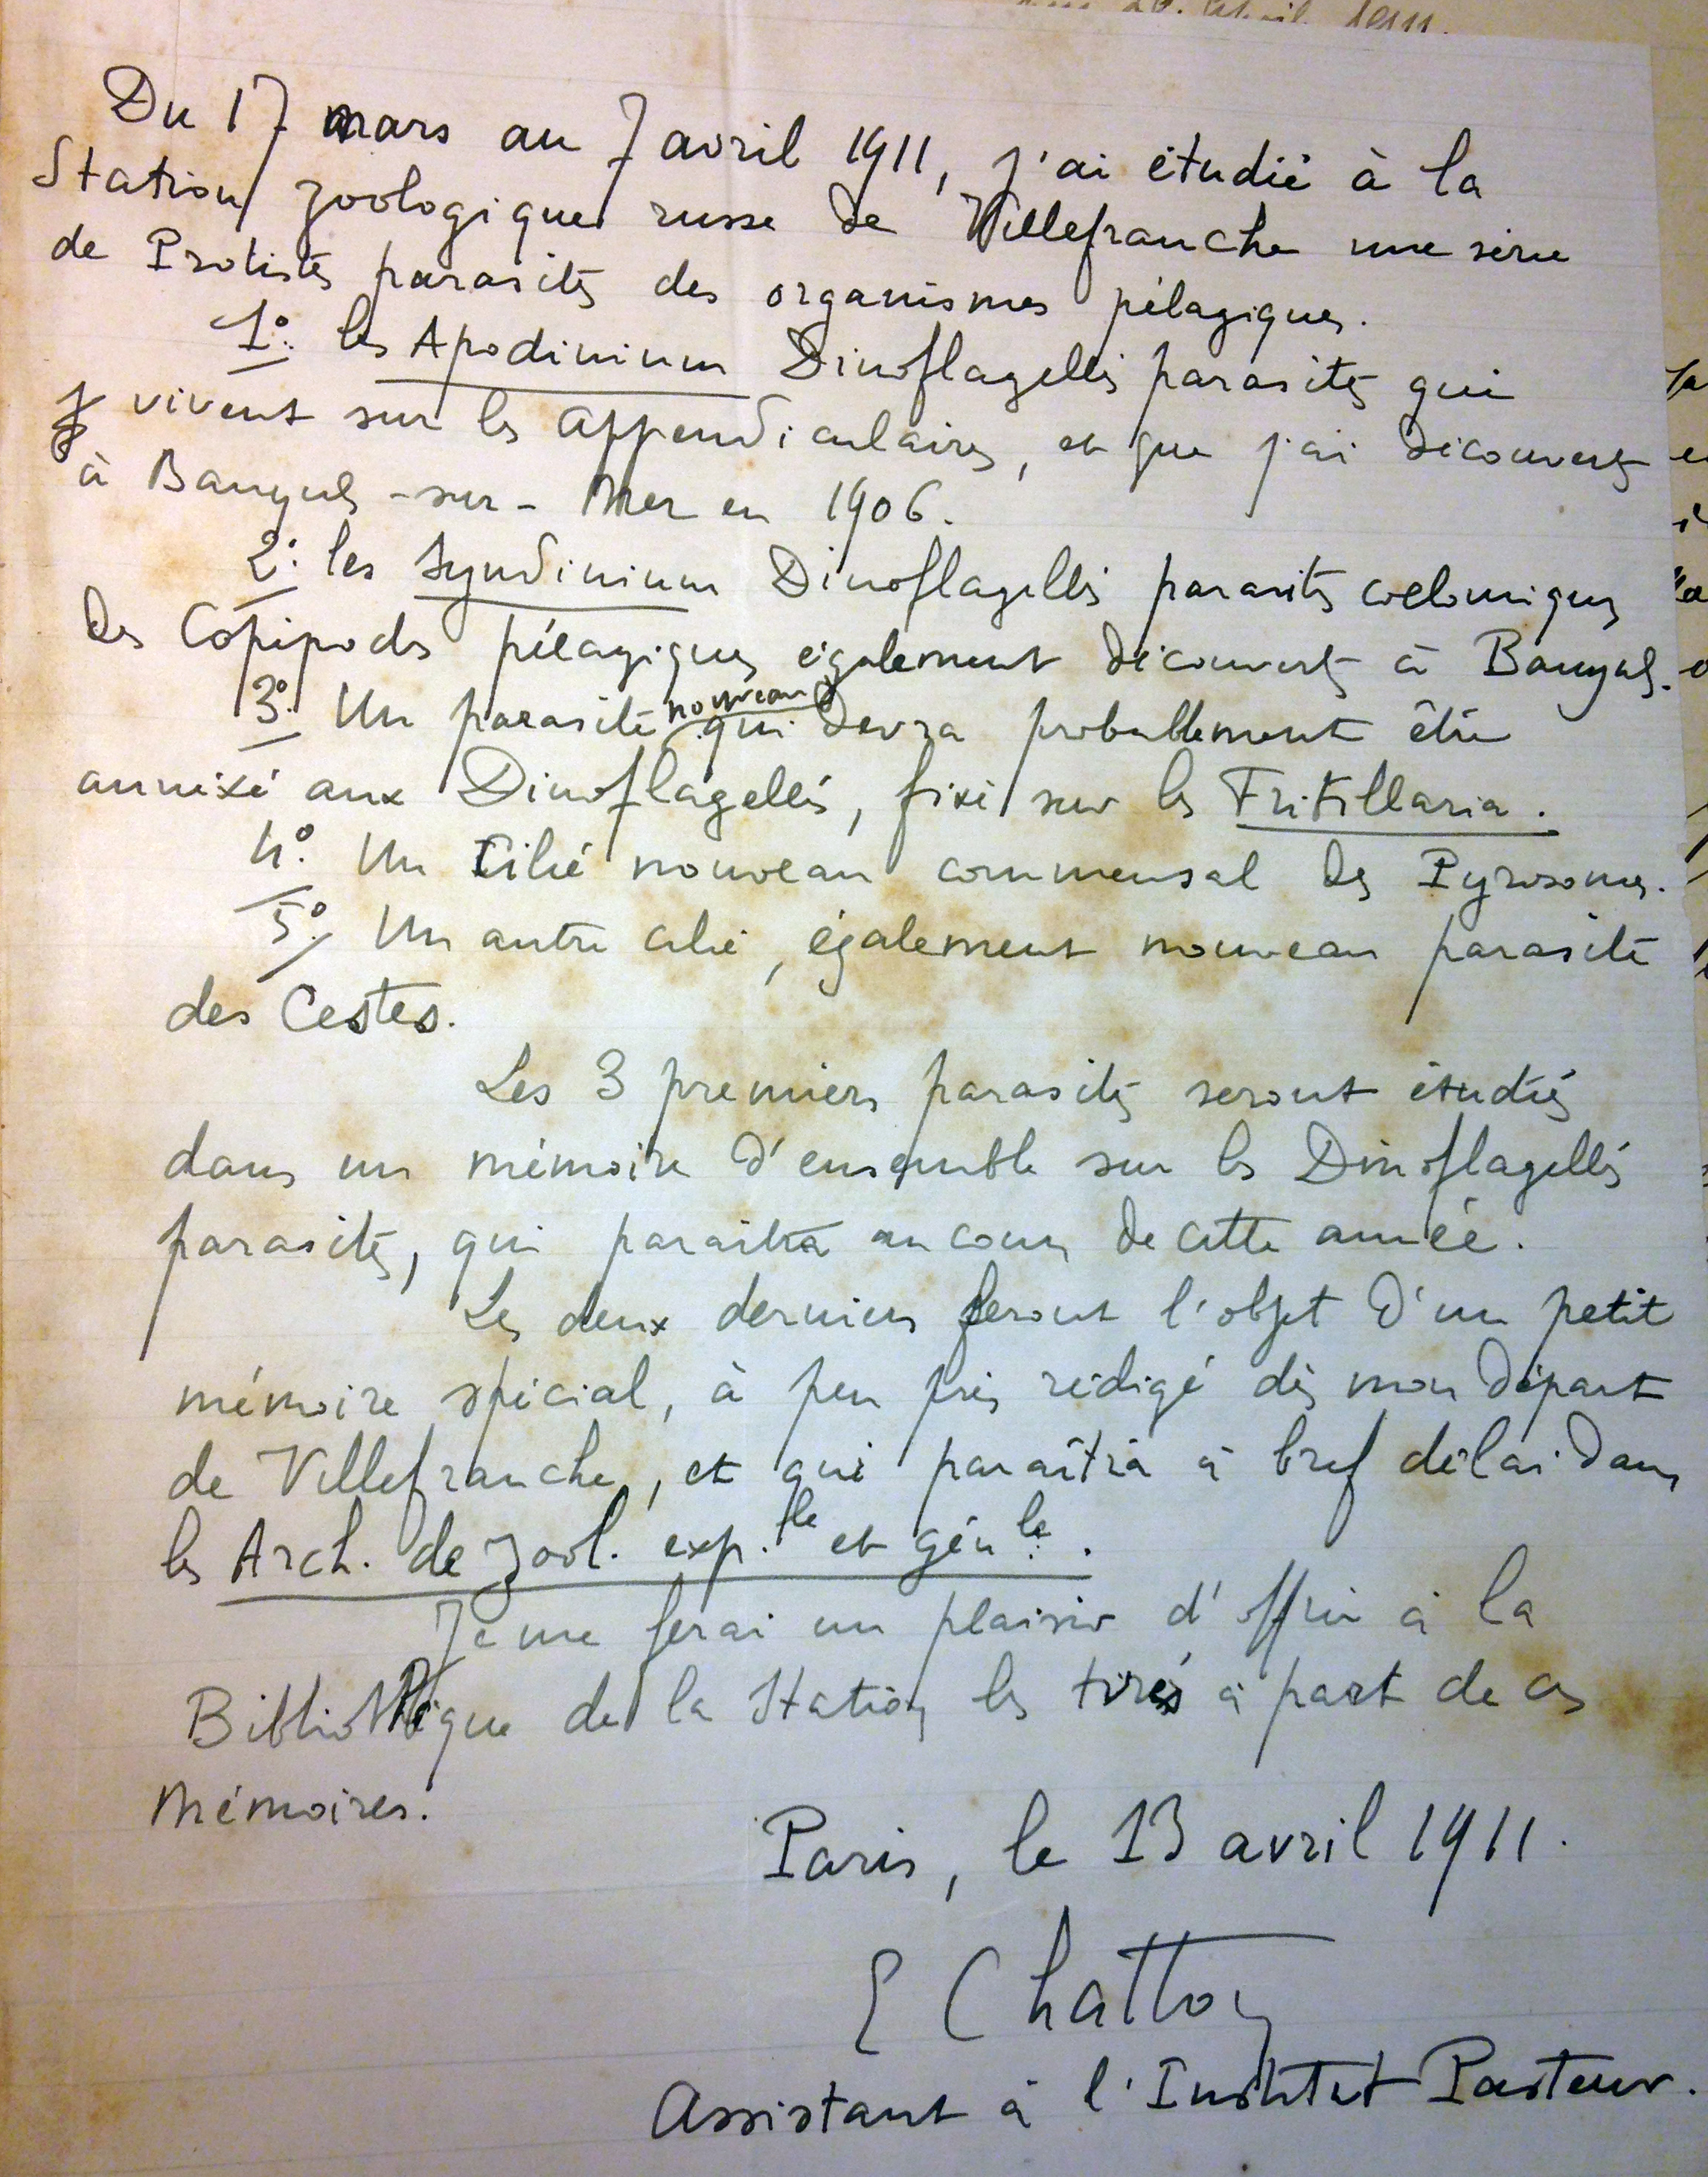 Du 17 mars au 7 avril 1911, j'ai étudié à la
Station zoologique russe de Villefranche une série
de Protistes parasites des organismes pélagiques.
1º. les Apodinium Dinoflagellés parasites qui
vivent sur les Appendiculaires, et que j'ai découverts
à Banyuls-sur-Mer en 1906.
2º. les Syndinium Dinoflagellés parasites coelomiques
des Copépodes pélagiques également découverts à Banyuls.
3º. Un parasite nouveau qui devra probablement être
annexé aux Dinoflagellés, fixé sur les Fritillaria.
4º. Un Cilié nouveau commensal des Pyrosomes.
5º. Un autre cilié, également nouveau parasite
des Cestes.
Les 3 premiers parasites seront étudiés
dans un mémoire d'ensemble sur les Dinoflagellés
parasites, qui paraîtra au cours de cette année.
Les deux derniers feront l'objet d'un petit
mémoire spécial, à peu près rédigé dès mon départ
de Villefranche, et qui paraîtra à bref délai dans
les Arch. de Zool. exp.le et gén.le.
Je me ferai un plaisir d'offrir à la
Bibliothèque de la Station les tirés à part de ces
Mémoires.
Paris, le 13 avril 1911.
E Chatton
Assistant à l'Institut Pasteur.